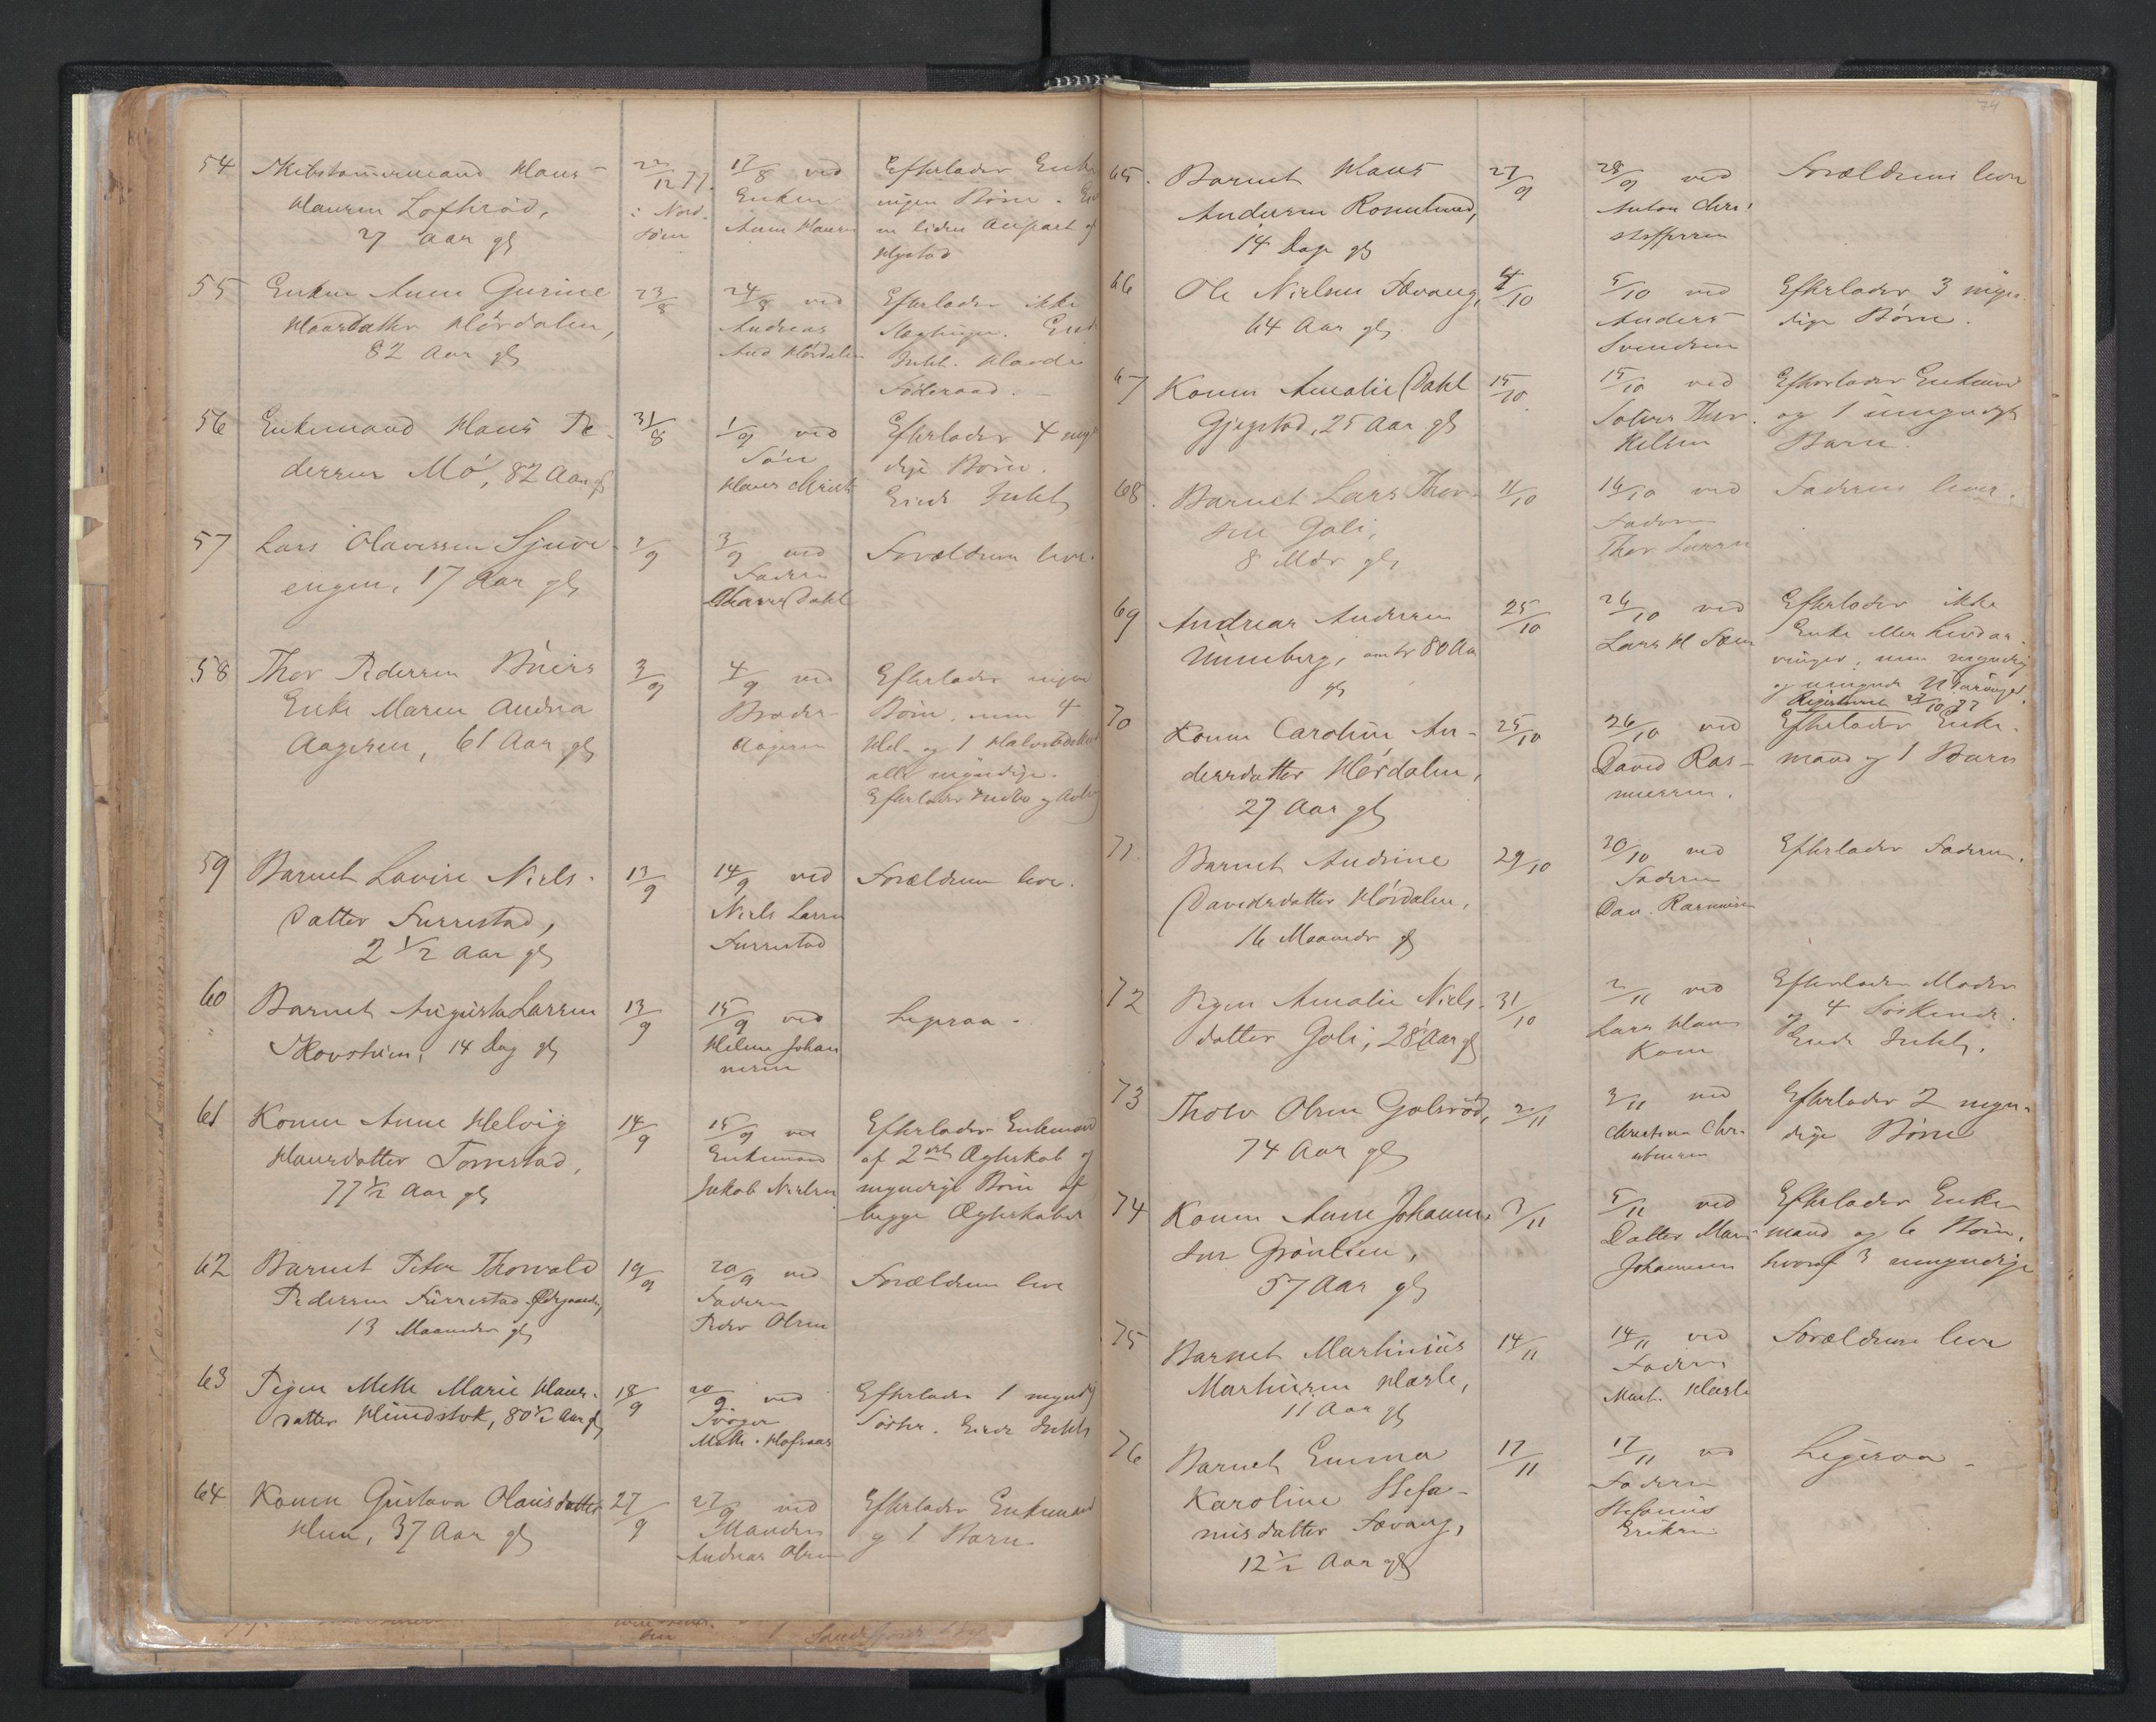 54 Skibstømmermand Hans
Hansen Lofterød,
27 Aar gl
22/12 77.
i Nord-
søen
17/8 ved
Enken
Anne Hansen
Efterlader Enke
ingen Børn.
en liden Anpart af
55 Enken Anne Gurine
Hansdatter Hørdalen,
82 Aar gl
23/8
24/8 ved
Andreas
And Hørdalen
Efterlader ikke
Slægtinger.
Intet. Havde
Föderaad.
56 Enkemand Hans Pe-
dersen Mø, 82 Aar gl
31/8
1/9 ved
Søn
Hans Christ
Efterlader 4 myn
dige Børn.
Eiede Intet
57 Lars Olavessen
engen, 17 Aar gl
2/9
3/9 ved
Faderen
Dahl
Forældrene leve.
58 Thor Pedersen Bøeirs
Enke Maren Andrea
Aagesen, 61 Aar gl
3/9
4/9 ved
Broder
Aagesen
Efterlader ingen
Børn, men 4
Hel- og 1 Halvsödsk
alle myndige.
Efterlader Indbo og
59 Barnet Lovise Niels-
datter Furrestad,
2 1/2 Aar gl
13/9
14/9 ved
Niels Larsen
Furrestad
Forældrene leve.
60 Barnet Augusta Larsen
Skovsheim, 14 Dag gl
13/9
15/9 ved
Helene Johan
nesen
Ligesaa -
61 Konen Anne Helvig
Hansdatter Torrestad,
77 1/2 Aar gl
14/9
15/9 ved
Enkemand
Jakob Nielsen
Efterlader Enkemand
af 2det Ægteskab og
myndige Børn af
begge Ægteskaber
62 Barnet Peter Thorvald
Pedersen Furrestad
13 Maaneder gl
19/9
20/9 ved
Faderen
Peder Olsen
Forældrene leve
63 Pigen Mette Marie Hans-
datter Himdstok, 80 1/2 Aar gl
18/9
20/9 ved
Svoger
Math.
Efterlader 1 myndig
Søster. Eiede Intet
64 Konen Gustava Olausdatter
Hem, 37 Aar gl
27/9
27/9 ved
Manden
Andreas Olsen
Efterlader Enkemand
og 1 Barn
74
65. Barnet Hans
Andersen Rosenlund,
14 Dage gl
27/9
28/9 ved
Anton Chri-
stoffersen
Forældrene leve
66 Ole Nielsen Tovang,
64 Aar gl
4/10
5/10 ved
Anders
Svendsen
Efterlader 3 myn-
dige Børn.
67 Konen Amalie Dahl
Gjegstad, 25 Aar gl
15/10
15/10 ved
Thor-
kelsen
Efterlader Enkemand
og 1 umyndigt
Barn.
68. Barnet Lars Thor-
sen Goli,
8 Mdr gl,
11/10
16/10 ved
Faderen
Thor Larsen
Faderen lever.
69 Andreas Andersen
Unneberg, omtr 80 Aar
gl
25/10
26/10 ved
Lars H Sæm
Efterlader ikke
Enke eller Livsar-
vinger, men myndig
og umyndig Udarvinger
Registreret 27/10 77
70 Konen Caroline An-
dersdatter Hørdalen,
27 Aar gl
25/10
26/10 ved
David Ras-
mussen.
Efterlader Enke-
mand og 1 Barn
71. Barnet Andrine
Davidsdatter Hørdalen,
16 Maaneder gl
29/10
30/10 ved
Faderen
Dav. Rasmussen
Efterlader Faderen.
72 Pigen Amalie Niels-
datter Goli, 28 Aar gl
31/10
2/11 ved
Lars Hans
Efterlader Moder
og 4 Söskende.
Eiede Intet.
73 Tholv Olsen Golsrød,
74 Aar gl
2/11
3/11 ved
Christian Chri-
stensen
Efterlader 2 myn-
dige Børn
74 Konen Anne Johanne-
sen Grønlien,
57 Aar gl
3/11
5/11 ved
Datter Mari
Johannesen
Efterlader Enke-
mand og 6 Børn,
hvoraf 3 umyndige
75 Barnet Martinius
Martinsen Hasle,
11 Aar gl
14/11
14/11 ved
Faderen
Mart. Hasle
Forældrene leve
76 Barnet Emma
Karoline Stefa-
nusdatter Tovang,
12 1/2 Aar gl
17/11
17/11 ved
Faderen
Stefanus
Eriksen
Ligesaa -